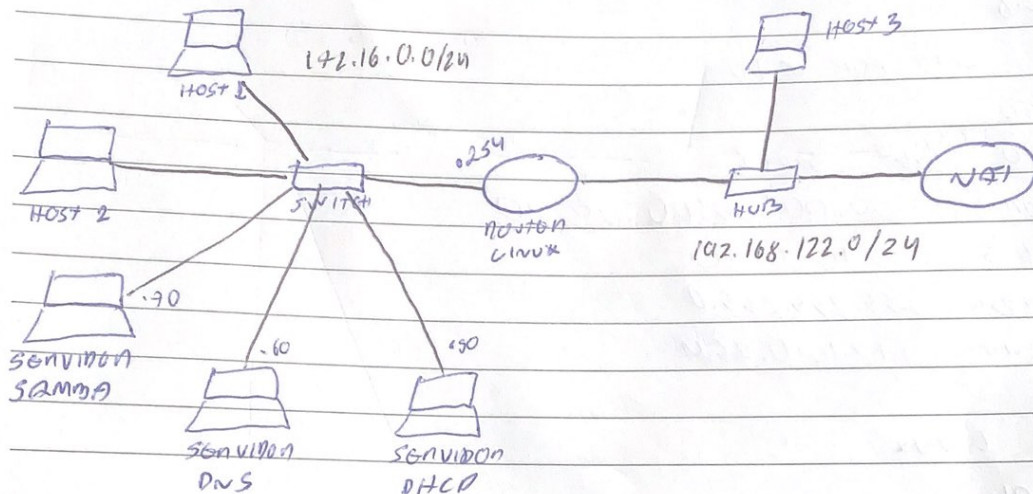 HOST 3
172.16.0.0/24
HOST 1
.254
NAT
HOST 2
SWITCH
ROUTER
LINUX
HUB
192.168.122.0/24
.70
SERVIDOR
SAMBA
.60
.50
SERVIDOR
DNS
SERVIDOR
DHCP